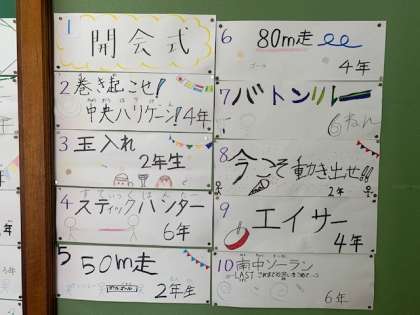 1
開会式
2 巻き起こせ!
中央ハリケーン!! 4年
3 玉入れ
2年生
4 スティックハンター
6年
5 50m走
2年生
6 80m走
4年
7 バトンリレー
6ねん
8 今こそ動き出せ!!
2年
9 エイサー
4年
10 南中ソーラン
LAST
6年